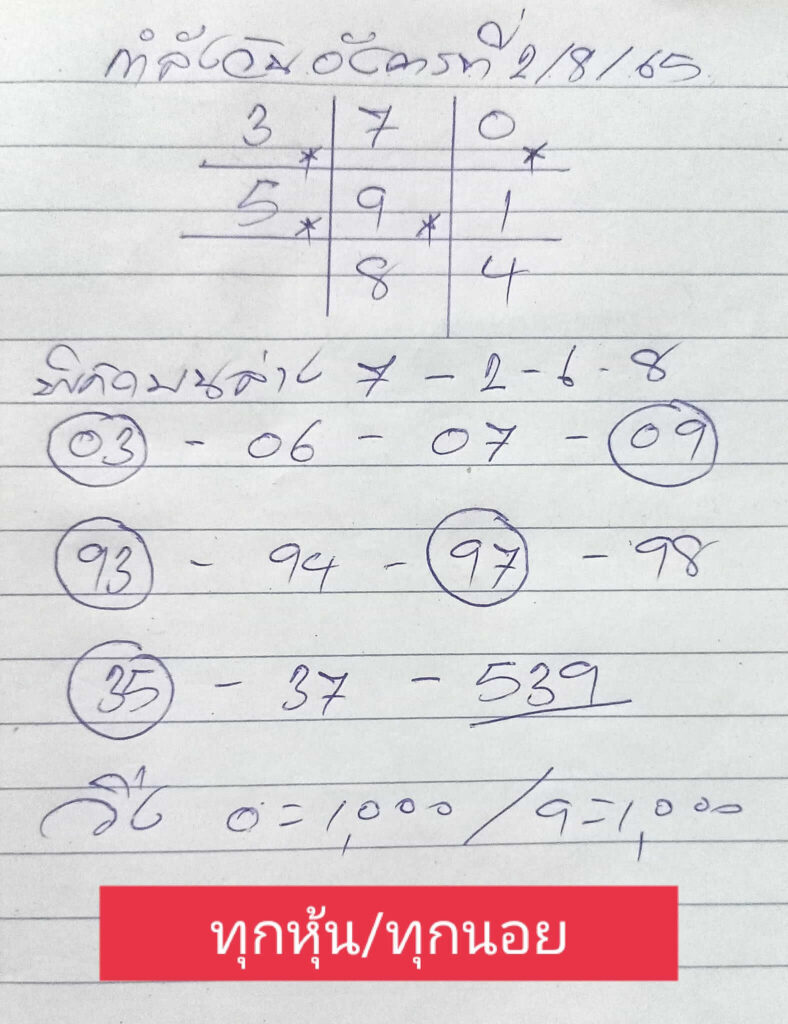 กำลังวัน อังคารที่ 2/8/65
3 * 7 0 *
5 * 9 * 1
8 4
พิกัดบนล่าง 7 - 2 - 6 - 8
03 - 06 - 07 - 09
93 - 94 - 97 - 98
35 - 37 - 539
วิ่ง 0 = 1,000 / 9 = 1,000
ทุกหุ้น/ทุกนอย